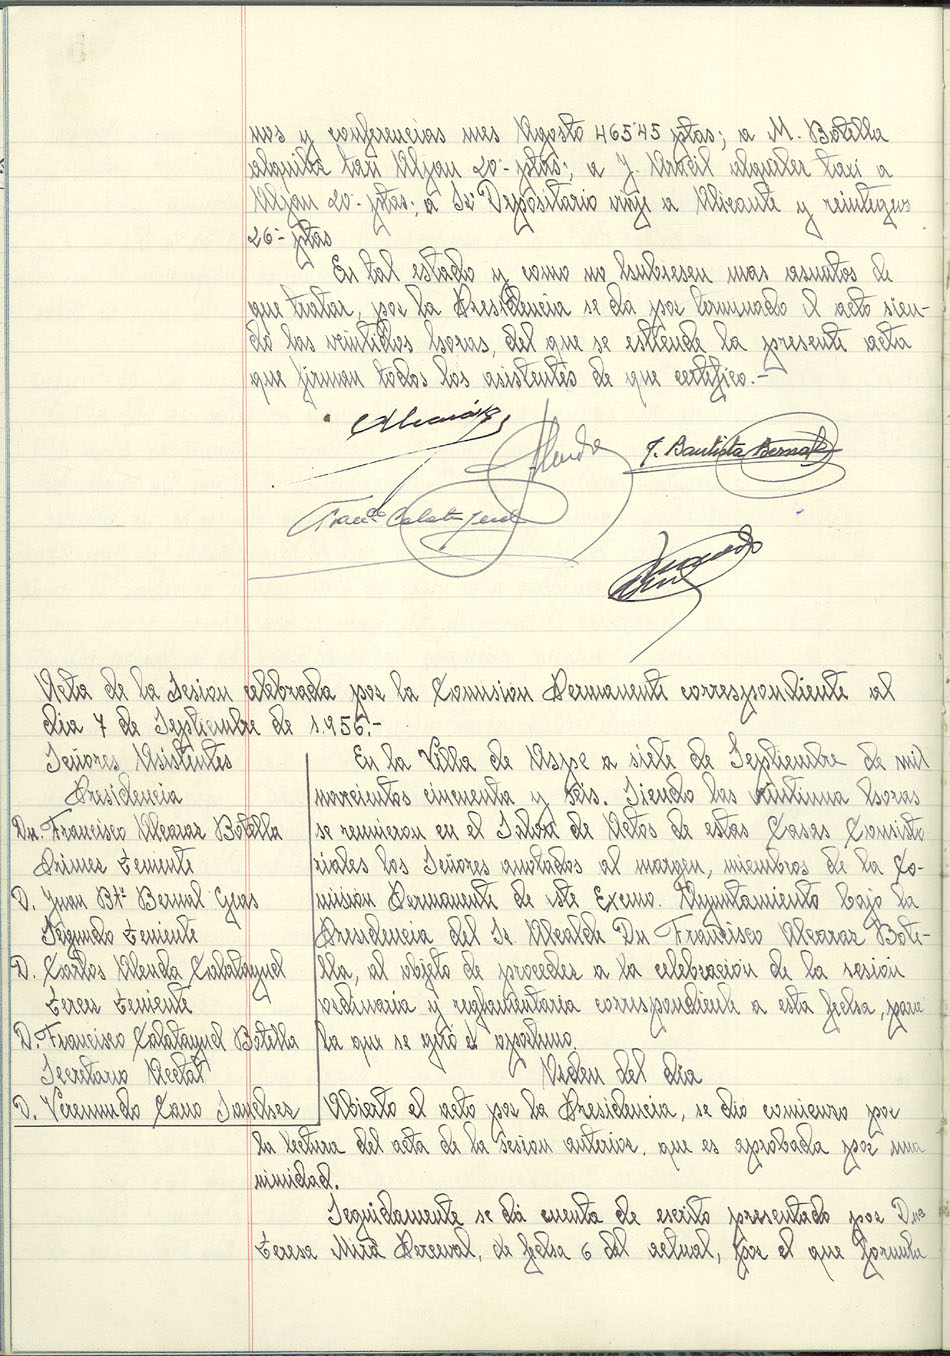 nos y conferencias mes Agosto 465'45 ptas; a M. Botella
alquiler taxi Aljau 20- ptas; a J. Mncil alquiler taxi a
Aljau 20- ptas; a Sr Depositario viaje a Alicante y reintegros
26- ptas
En tal estado y como no hubiesen mas asuntos de
que tratar, por la Presidencia se da por terminado el acto sien-
do las veintidos horas, del que se estiende la presente acta
que firman todos los asistentes de que certifico.-
Alcaráz
Almda
J. Bautista Bernal
Franco Calatayud
Acta de la Sesion celebrada por la Comision Permanente correspondiente al
dia 7 de Septiembre de 1.956.-
Señores Asistentes
Presidencia
Dn. Francisco Alcaraz Botella
Primer Teniente
D. Juan Btª Bernal Gras
Segundo Teniente
D. Carlos Almda Calatayud
Tercer Teniente
D. Francisco Calatayud Botella
Secretario Acctal
D. Veremundo Cano Sanchez
En la Villa de Aspe a siete de Septiembre de mil
novecientos cincuenta y seis. Siendo las veintiuna horas
se reunieron en el Salon de Actos de estas Casas Consisto
riales los Señores anotados al margen, miembros de la Co-
mision Permanente de este Excmo. Ayuntamiento bajo la
Presidencia del Sr. Alcalde Dn Francisco Alcaraz Bote-
lla, al objeto de proceder a la celebracion de la sesion
ordinaria y reglamentaria correspondiente a esta fecha, para
la que se citó de oportuno.
Orden del dia
Abierto el acto por la Presidencia, se dio comienzo por
la lectura del acta de la sesion anterior, que es aprobada por una
nimidad.
Seguidamente se dá cuenta de escrito presentado por Dna
Teresa Mira Perceval, de fecha 6 del actual, por el que formula